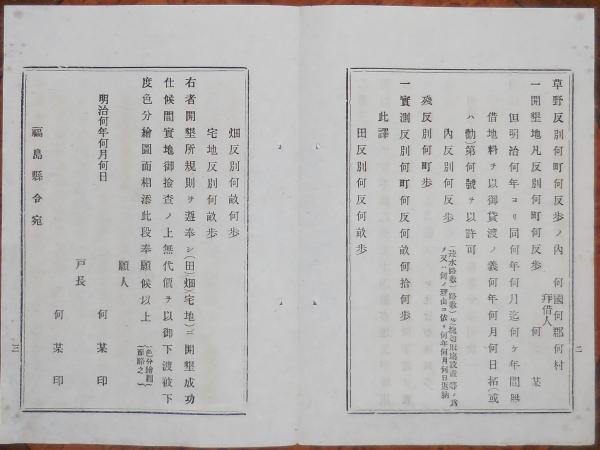 草野反別何町何反歩ノ內　何國何郡何村
拜借人　何　某
一開墾地凡反別何町何反歩
但明治何年ヨリ同何年何月迄何ケ年間無
借地料ヲ以御貸渡ノ義何年何月何日拓(或
ハ勸)第何號ヲ以許可
內反別何反歩
殘反別何町歩
一實測反別何町何反何畝何拾何歩
此譯
田反別何反別何畝歩
二
畑反別何畝何歩
宅地反別何畝歩
右者開墾所規則ヲ遵奉シ(田)(畑)(宅地)ニ開墾成功
仕候間實地御撿査ノ上無代價ヲ以御下渡被下
度色分繪圖面相添此段奉願候以上
(色分繪圖
面略之)
願人
何　某　印
明治何年何月何日
戸長
何　某　印
福島縣令宛
三